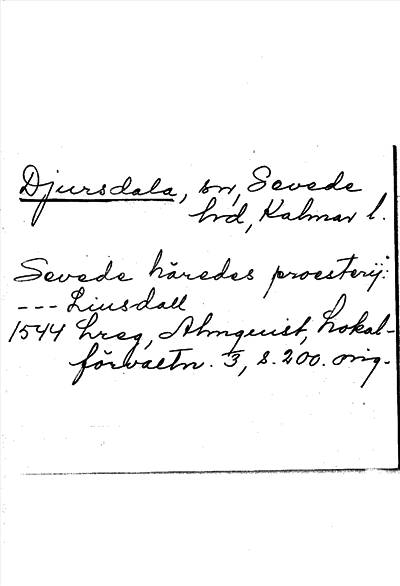 Djursdala, sn, Sevede
hrd, Kalmar l.
Sevede häredes proesterij:
--- Liusdall
1544 hreg, Almquist, Lokal-
förvaltn. 3, s. 200. orig.